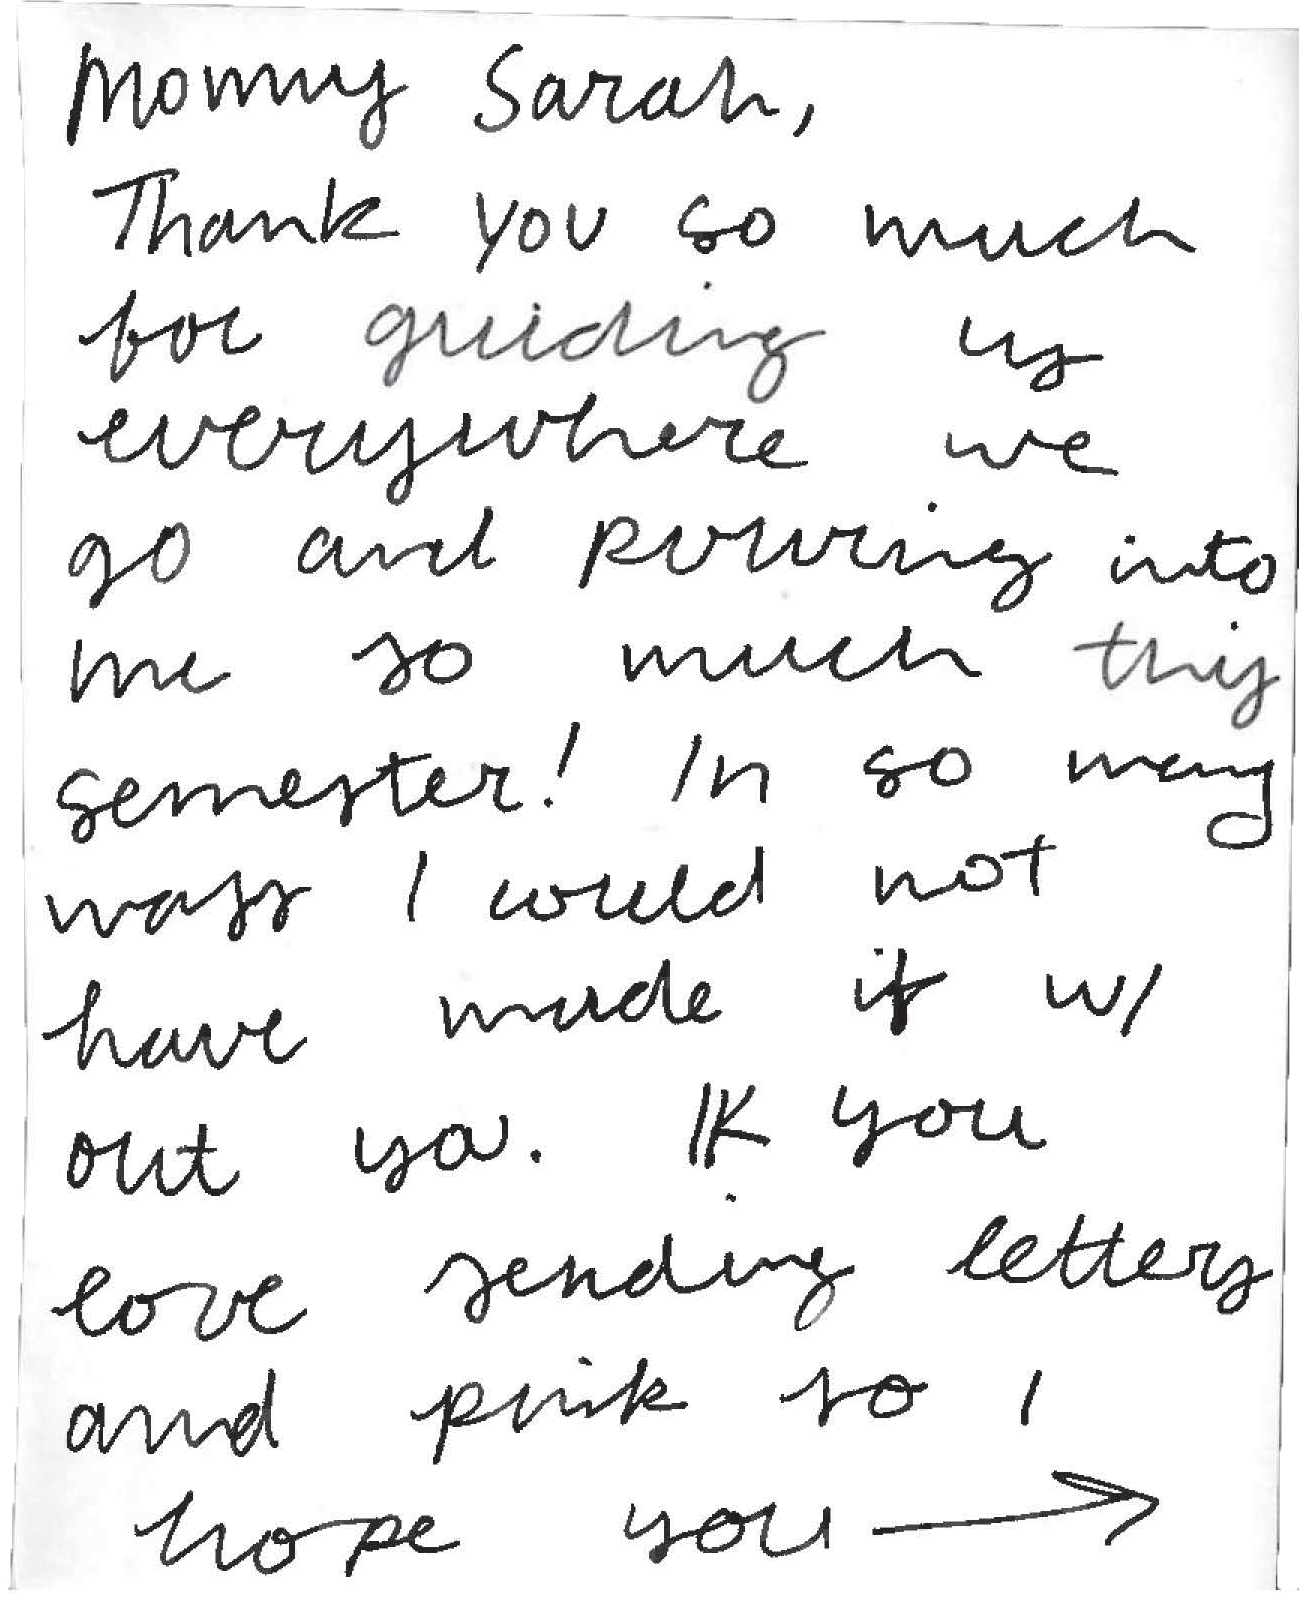 Mommy Sarah,
Thank you so much
for guiding us
everywhere we
go and pouring into
me so much this
semester! In so many
ways I would not
have made it w/
out ya. IK you
love sending letters
and pink so I
hope you →